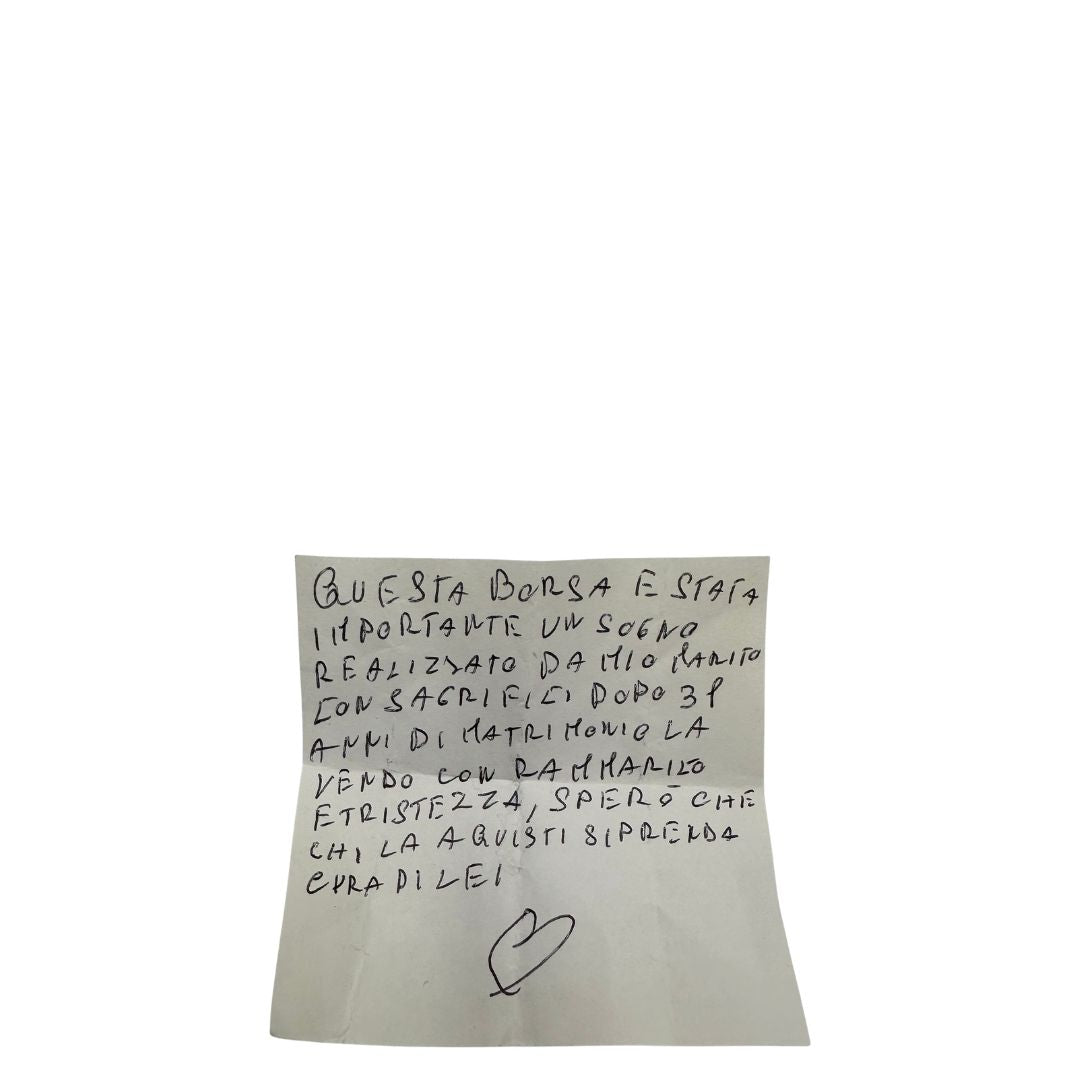 QUESTA BORSA E STATA
IMPORTANTE UN SOGNO
REALIZZATO DA MIO MARITO
CON SACRIFICI DOPO
ANNI DI MATRIMONIO LA
VENDO CON RAMMARICO
E TRISTEZZA, SPERO CHE
CHI LA AQUISTI SI PRENDA
CURA DI LEI